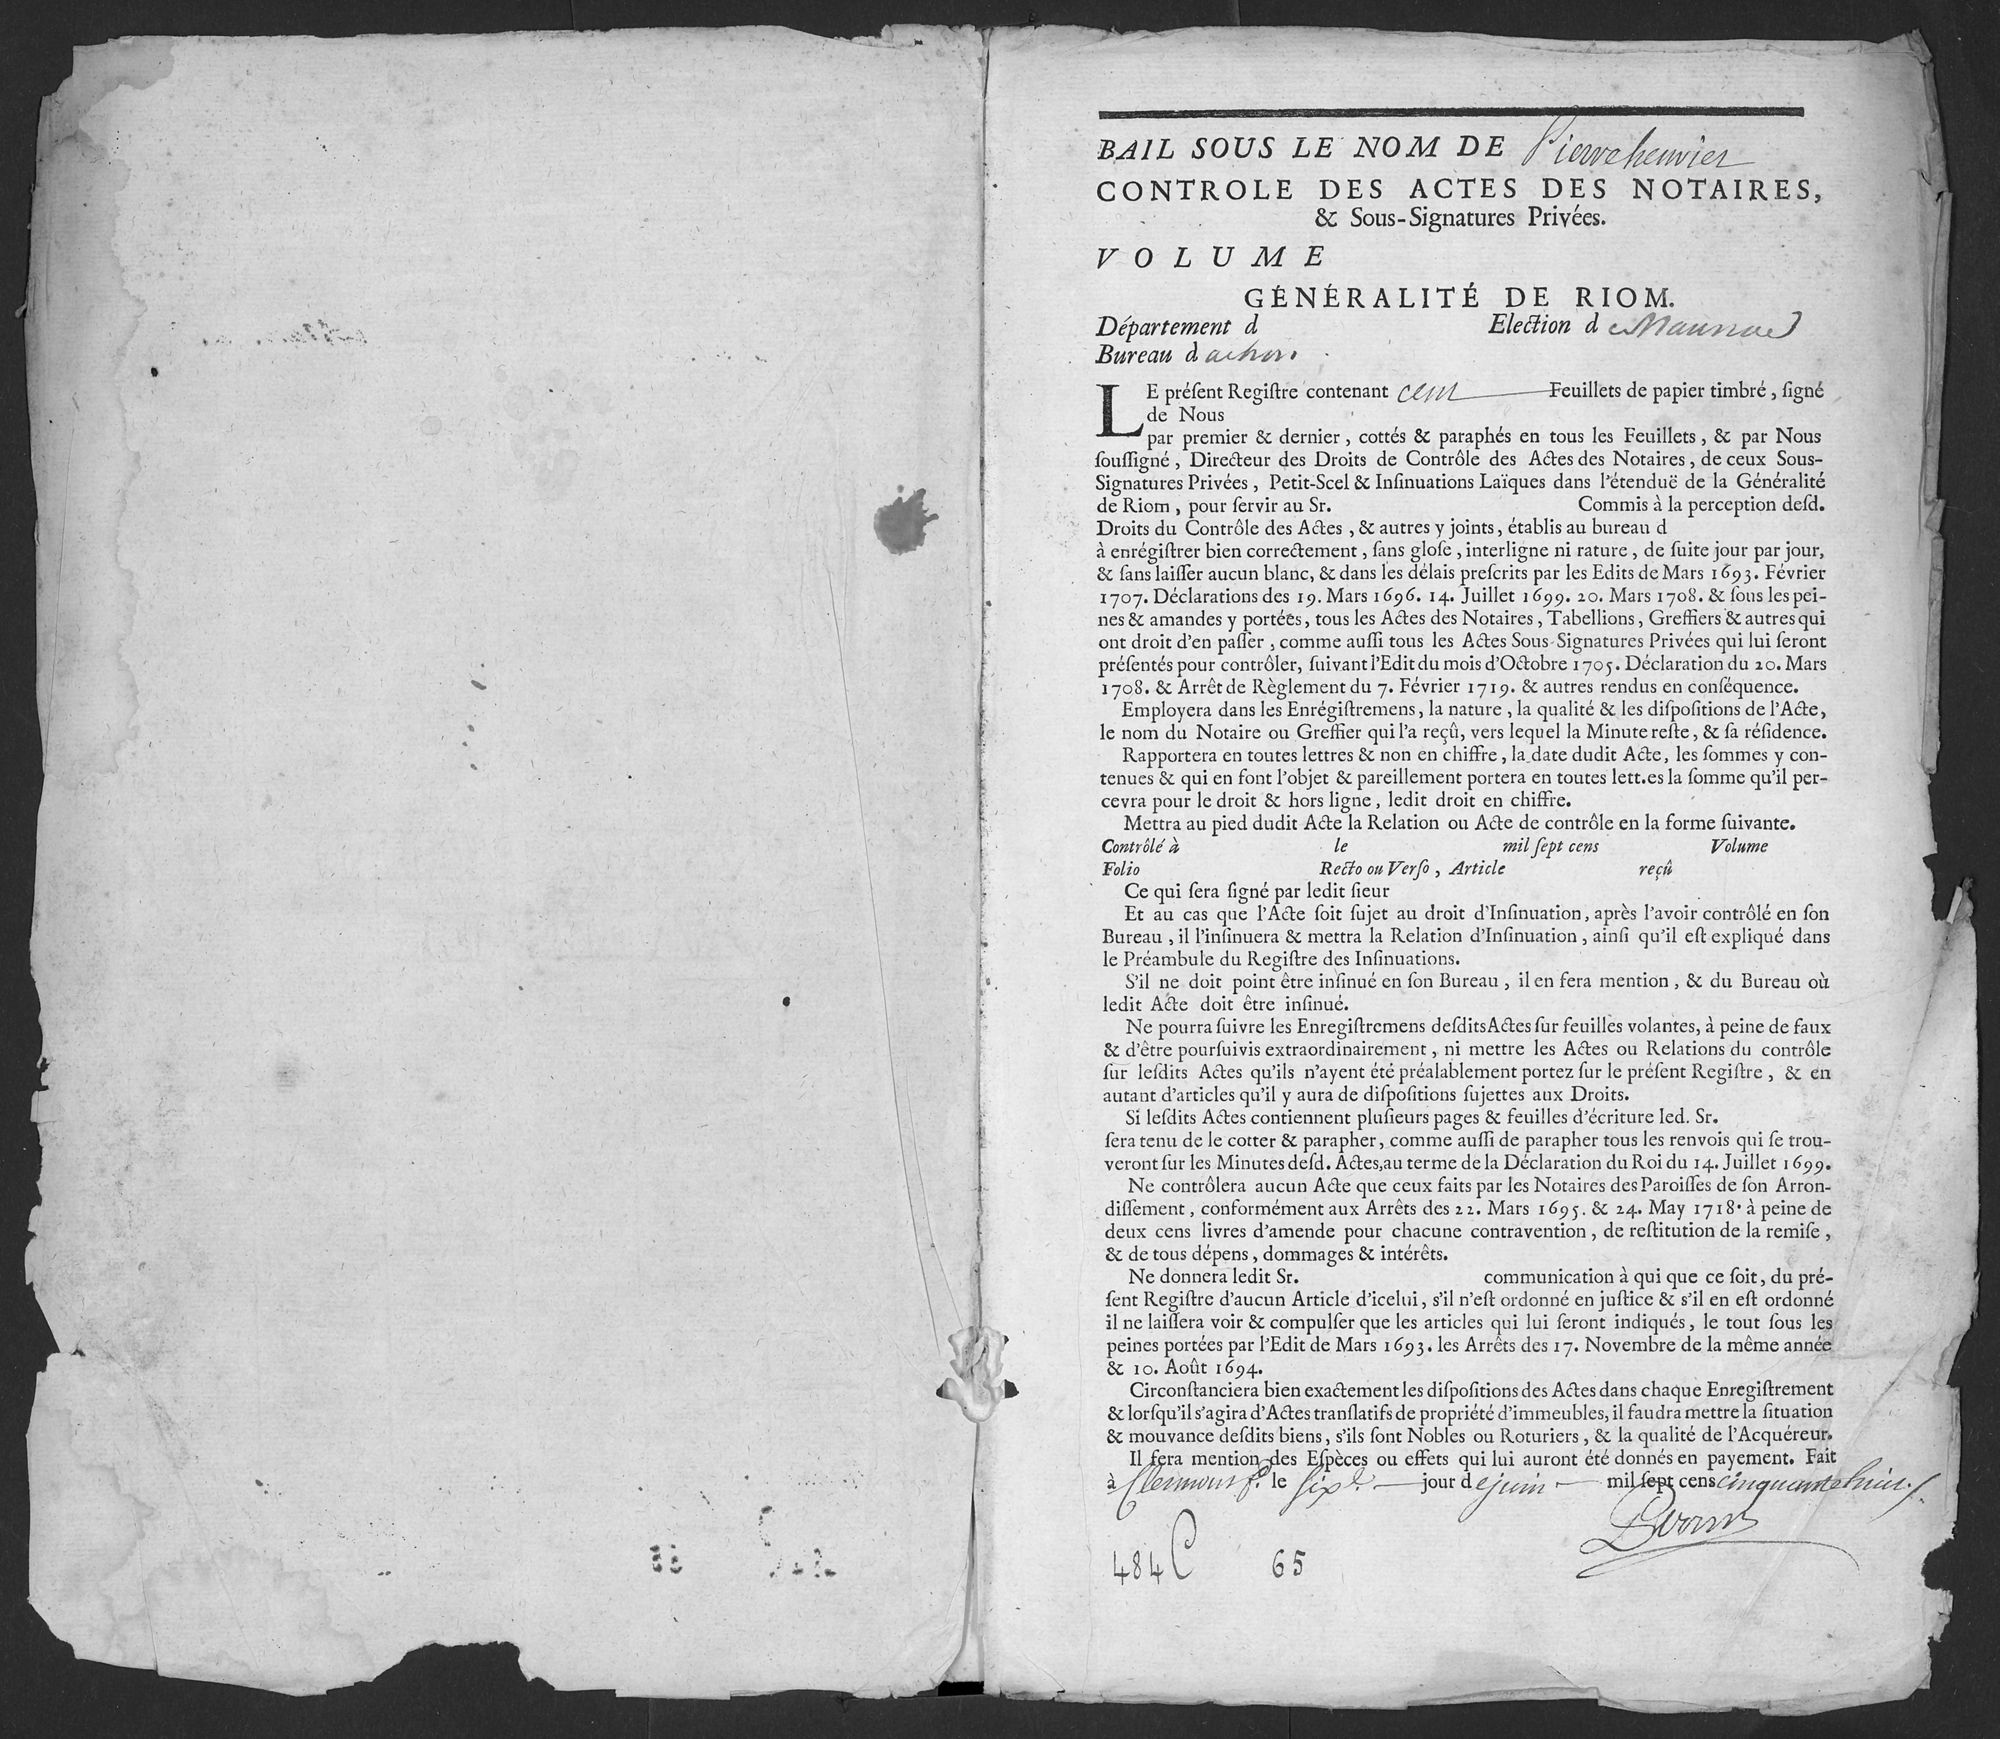 BAIL SOUS LE NOM DE Pierre henrier
CONTROLE DES ACTES DES NOTAIRES,
& Sous-Signatures Privées.
VOLUME
GÉNÉRALITÉ DE RIOM.
Département d Election de Mauriac
Bureau d
LE préſent Regiſtre contenant cent Feuillets de papier timbré, ſigné
de Nous
par premier & dernier, cottés & paraphés en tous les Feuillets, & par Nous
ſouſſigné, Directeur des Droits de Contrôle des Actes des Notaires, de ceux Sous-
Signatures Privées, Petit-Scel & Inſinuations Laïques dans l'étenduë de la Généralité
de Riom, pour ſervir au Sr. Commis à la perception deſd.
Droits du Contrôle des Actes, & autres y joints, établis au bureau d
à enrégiſtrer bien correctement, ſans gloſe, interligne ni rature, de ſuite jour par jour,
& ſans laiſſer aucun blanc, & dans les délais preſcrits par les Edits de Mars 1693. Février
1707. Déclarations des 19. Mars 1696. 14. Juillet 1699. 20. Mars 1708. & ſous les pei-
nes & amandes y portées, tous les Actes des Notaires, Tabellions, Greffiers & autres qui
ont droit d'en paſſer, comme auſſi tous les Actes Sous-Signatures Privées qui lui ſeront
préſentés pour contrôler, ſuivant l'Edit du mois d'Octobre 1705. Déclaration du 20. Mars
1708. & Arrêt de Règlement du 7. Février 1719. & autres rendus en conſéquence.
Employera dans les Enrégiſtremens, la nature, la qualité & les diſpoſitions de l'Acte,
le nom du Notaire ou Greffier qui l'a reçû, vers lequel la Minute reſte, & ſa réſidence.
Rapportera en toutes lettres & non en chiffre, la date dudit Acte, les ſommes y con-
tenues & qui en font l'objet & pareillement portera en toutes lett.es la ſomme qu'il per-
cevra pour le droit & hors ligne, ledit droit en chiffre.
Mettra au pied dudit Acte la Relation ou Acte de contrôle en la forme ſuivante.
Contrôlé à le mil ſept cens Volume
Folio Recto ou Verſo, Article reçû
Ce qui ſera ſigné par ledit ſieur
Et au cas que l'Acte ſoit ſujet au droit d'Inſinuation, après l'avoir contrôlé en ſon
Bureau, il l'inſinuera & mettra la Relation d'Inſinuation, ainſi qu'il eſt expliqué dans
le Préambule du Regiſtre des Inſinuations.
S'il ne doit point être inſinué en ſon Bureau, il en fera mention, & du Bureau où
ledit Acte doit être inſinué.
Ne pourra ſuivre les Enregiſtremens deſdits Actes ſur feuilles volantes, à peine de faux
& d'être pourſuivis extraordinairement, ni mettre les Actes ou Relations du contrôle
ſur leſdits Actes qu'ils n'ayent été préalablement portez ſur le préſent Regiſtre, & en
autant d'articles qu'il y aura de diſpoſitions ſujettes aux Droits.
Si leſdits Actes contiennent pluſieurs pages & feuilles d'écriture led. Sr.
ſera tenu de le cotter & parapher, comme auſſi de parapher tous les renvois qui ſe trou-
veront ſur les Minutes deſd. Actes, au terme de la Déclaration du Roi du 14. Juillet 1699.
Ne contrôlera aucun Acte que ceux faits par les Notaires des Paroiſſes de ſon Arron-
diſſement, conformément aux Arrêts des 22. Mars 1695. & 24. May 1718. à peine de
deux cens livres d'amende pour chacune contravention, de reſtitution de la remiſe,
& de tous dépens, dommages & intérêts.
Ne donnera ledit Sr. communication à qui que ce ſoit, du pré-
ſent Regiſtre d'aucun Article d'icelui, s'il n'eſt ordonné en juſtice & s'il en eſt ordonné
il ne laiſſera voir & compulſer que les articles qui lui ſeront indiqués, le tout ſous les
peines portées par l'Edit de Mars 1693. les Arrêts des 17. Novembre de la même année
& 10. Août 1694.
Circonſtanciera bien exactement les diſpoſitions des Actes dans chaque Enregiſtrement
& lorſqu'il s'agira d'Actes tranſlatifs de propriété d'immeubles, il faudra mettre la ſituation
& mouvance deſdits biens, s'ils ſont Nobles ou Roturiers, & la qualité de l'Acquéreur.
Il fera mention des Eſpèces ou effets qui lui auront été donnés en payement. Fait
à Clermont fd. le ſixe jour de juin mil ſept cens cinquante huit.
484 C 65